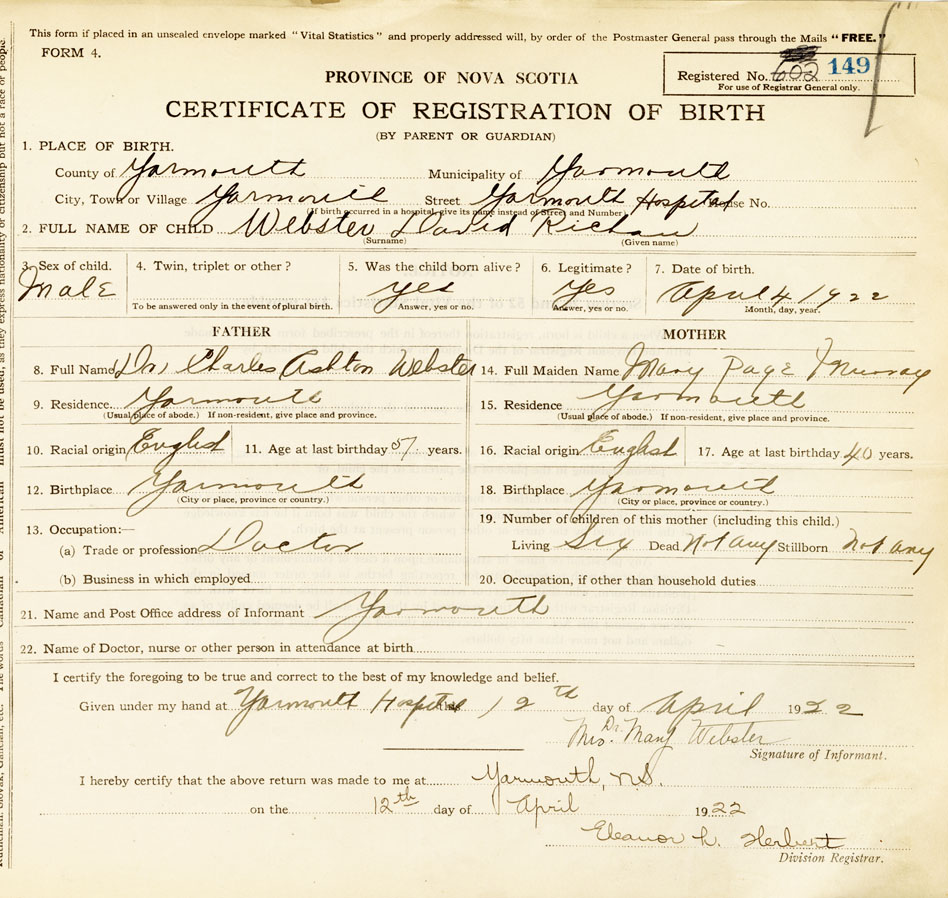 This form if placed in an unsealed envelope marked "Vital Statistics" and properly addressed will, by order of the Postmaster General pass through the Mails "FREE."
FORM 4.
PROVINCE OF NOVA SCOTIA
Registered No. 602 149
For use of Registrar General only.
CERTIFICATE OF REGISTRATION OF BIRTH
(BY PARENT OR GUARDIAN)
1. PLACE OF BIRTH.
County of Yarmouth Municipality of Yarmouth
City, Town or Village Yarmouth Street Yarmouth Hospital House No.
(If birth occurred in a hospital, give its name instead of Street and Number)
2. FULL NAME OF CHILD Webster David Richan
(Surname) (Given name)
3. Sex of child. 4. Twin, triplet or other? 5. Was the child born alive? 6. Legitimate? 7. Date of birth.
Male yes Yes April 4 1922
To be answered only in the event of plural birth. Answer, yes or no. Answer, yes or no. Month, day, year.
FATHER MOTHER
8. Full Name Dr. Charles Ashton Webster 14. Full Maiden Name Mary Page Murray
9. Residence Yarmouth 15. Residence Yarmouth
(Usual place of abode.) If non-resident, give place and province. (Usual place of abode.) If non-resident, give place and province.
10. Racial origin English 11. Age at last birthday 57 years. 16. Racial origin English 17. Age at last birthday 40 years.
12. Birthplace Yarmouth 18. Birthplace Yarmouth
(City or place, province or country.) (City or place, province or country.)
13. Occupation:— 19. Number of children of this mother (including this child.)
(a) Trade or profession Doctor Living Six Dead Not any Stillborn not any
(b) Business in which employed 20. Occupation, if other than household duties
21. Name and Post Office address of Informant Yarmouth
22. Name of Doctor, nurse or other person in attendance at birth
I certify the foregoing to be true and correct to the best of my knowledge and belief.
Given under my hand at Yarmouth Hospital this 12th day of April 1922
Mrs. Dr. Mary Webster
Signature of Informant.
I hereby certify that the above return was made to me at Yarmouth, N.S.
on the 12th day of April 1922
Eleanor L. Herbert
Division Registrar.